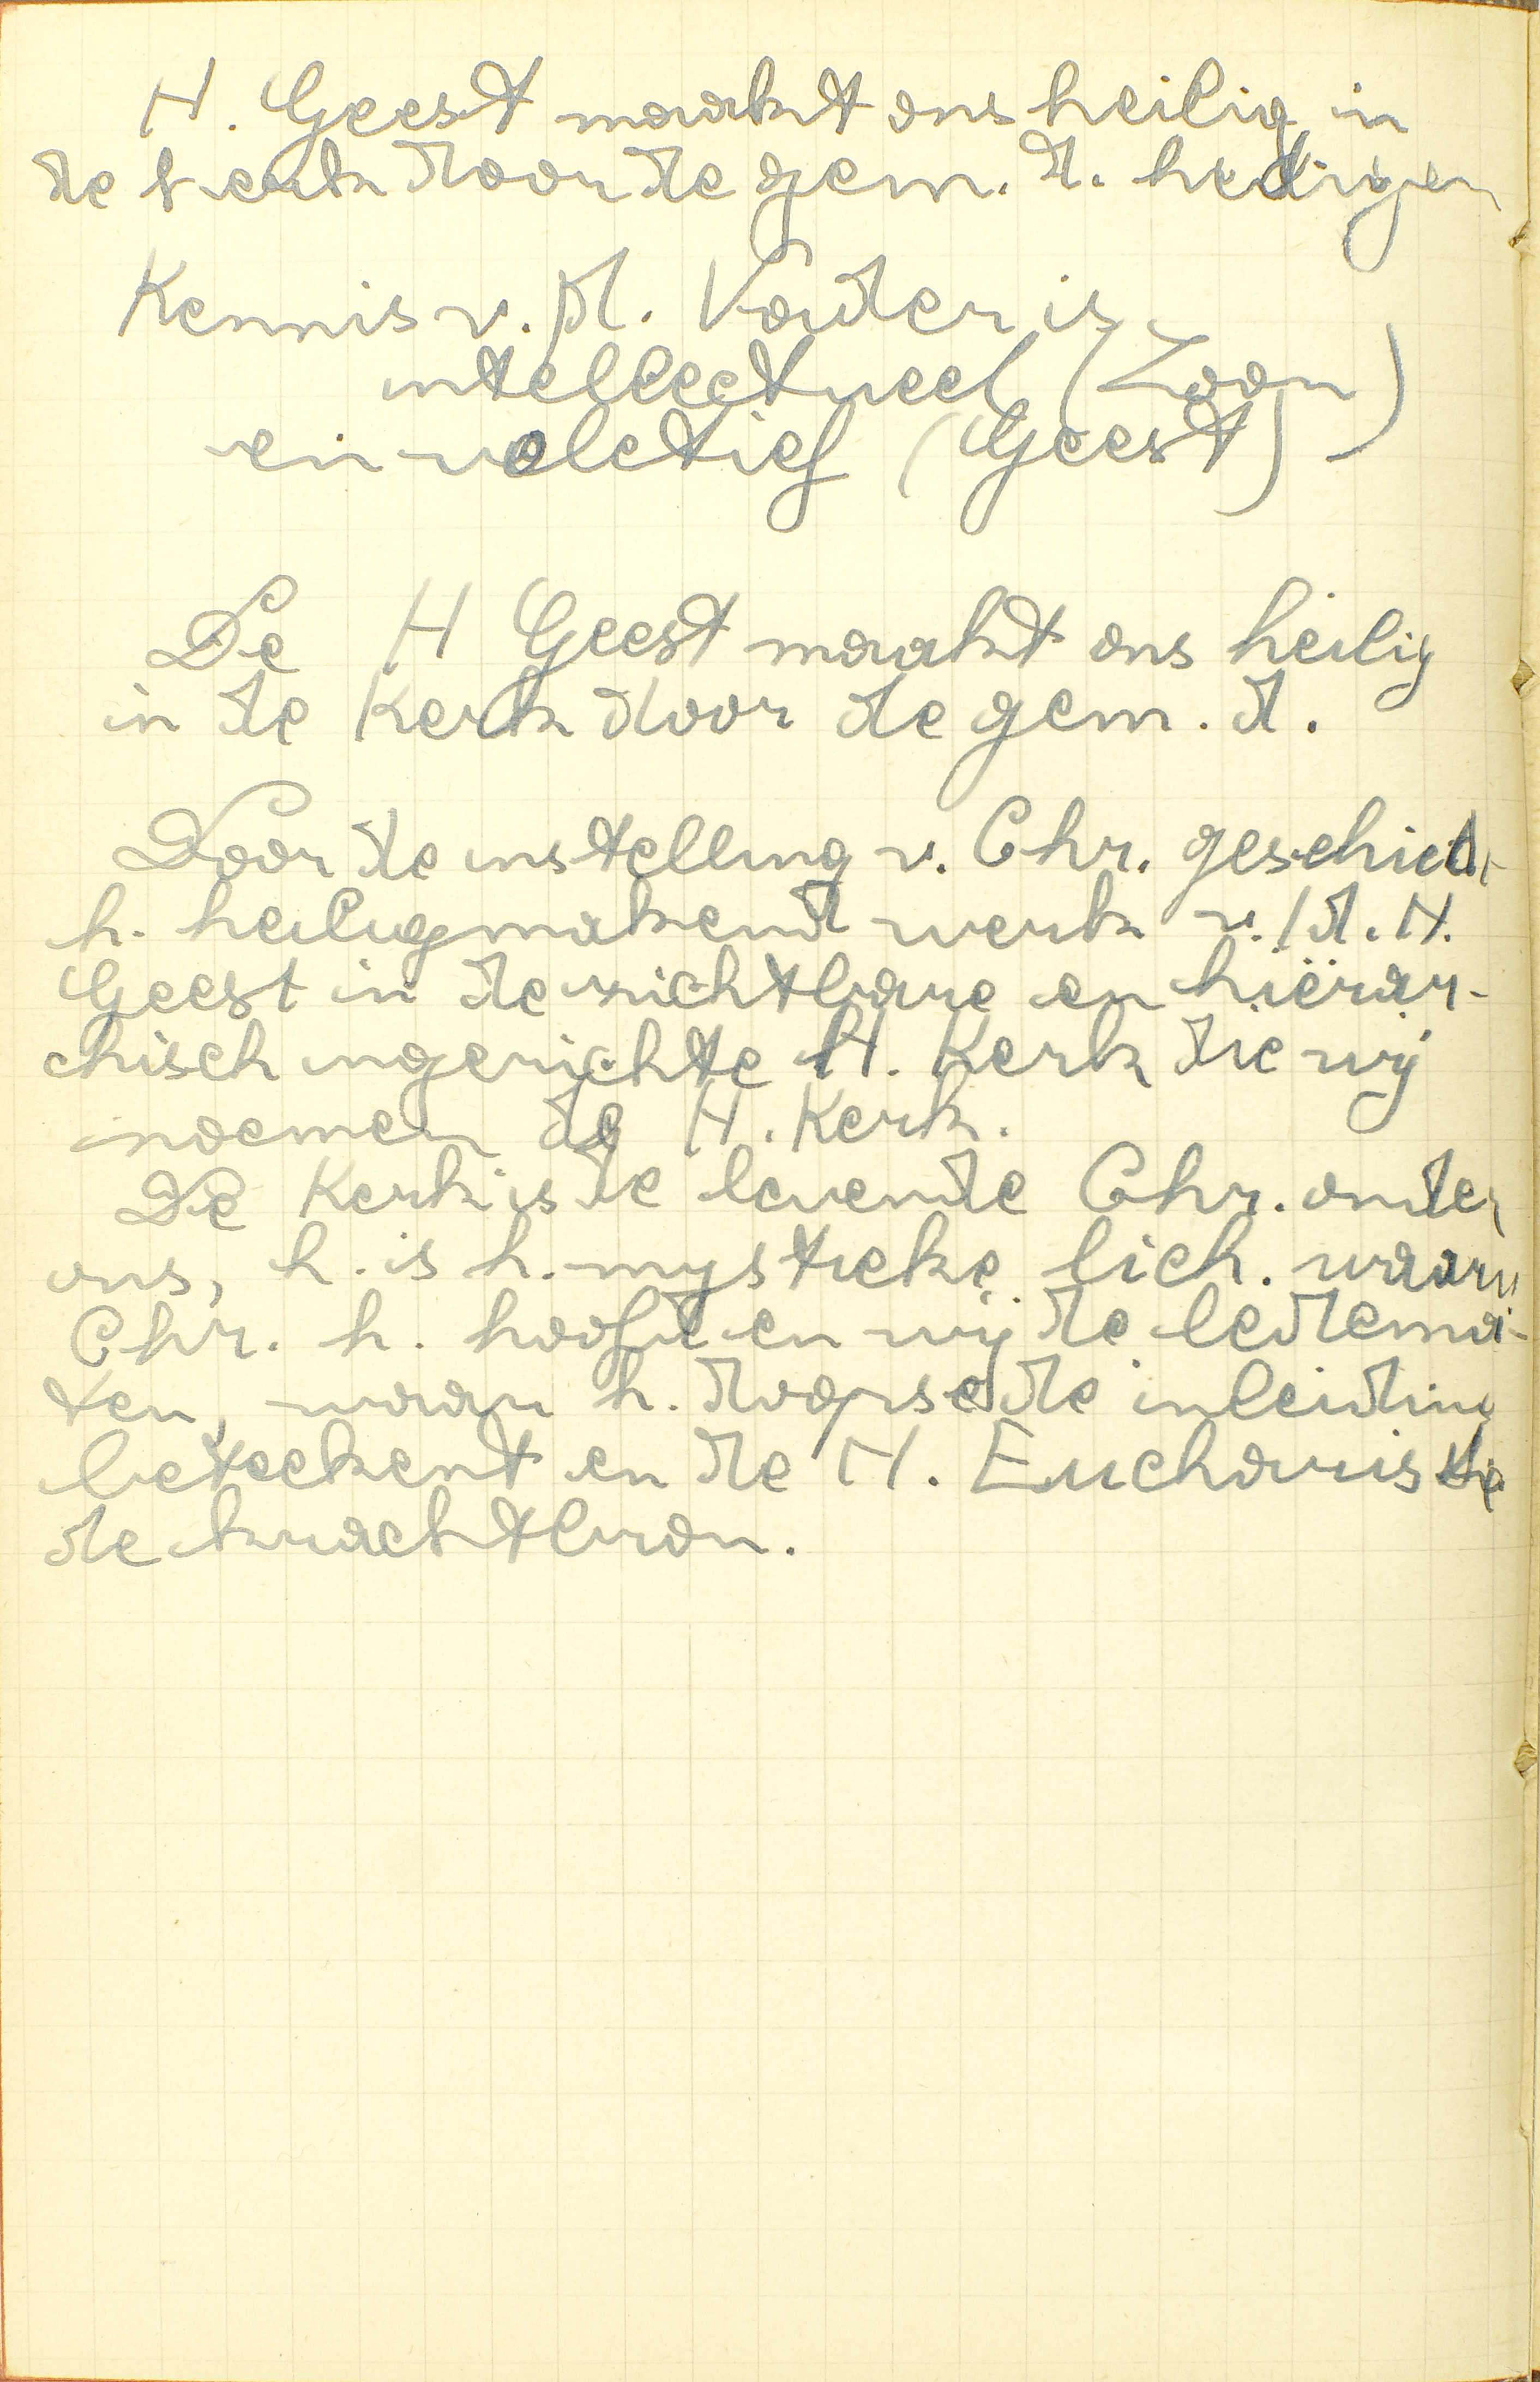 H. Geest maakt ons heilig in
de kerk door de gem. d. heiligen
Kennis v. d. Vader is
intellectueel (Zoon)
en voletief (Geest)
De H Geest maakt ons heilig
in de Kerk door de gem. d.
Door de instelling v. Chr. geschiedt
h. heiligmakend werk v. d. H.
Geest in de zichtbare en hiërar-
chisch ingerichte H. Kerk die wij
noemen de H. Kerk.
De Kerk is de levende Chr. onder
ons, h. is h. mystieke lich. waarv
Chr. h. hoofd en wij de ledema-
ten, waarv h. doopsel de inleiding
betekent en de H. Eucharistie
de krachtbron.